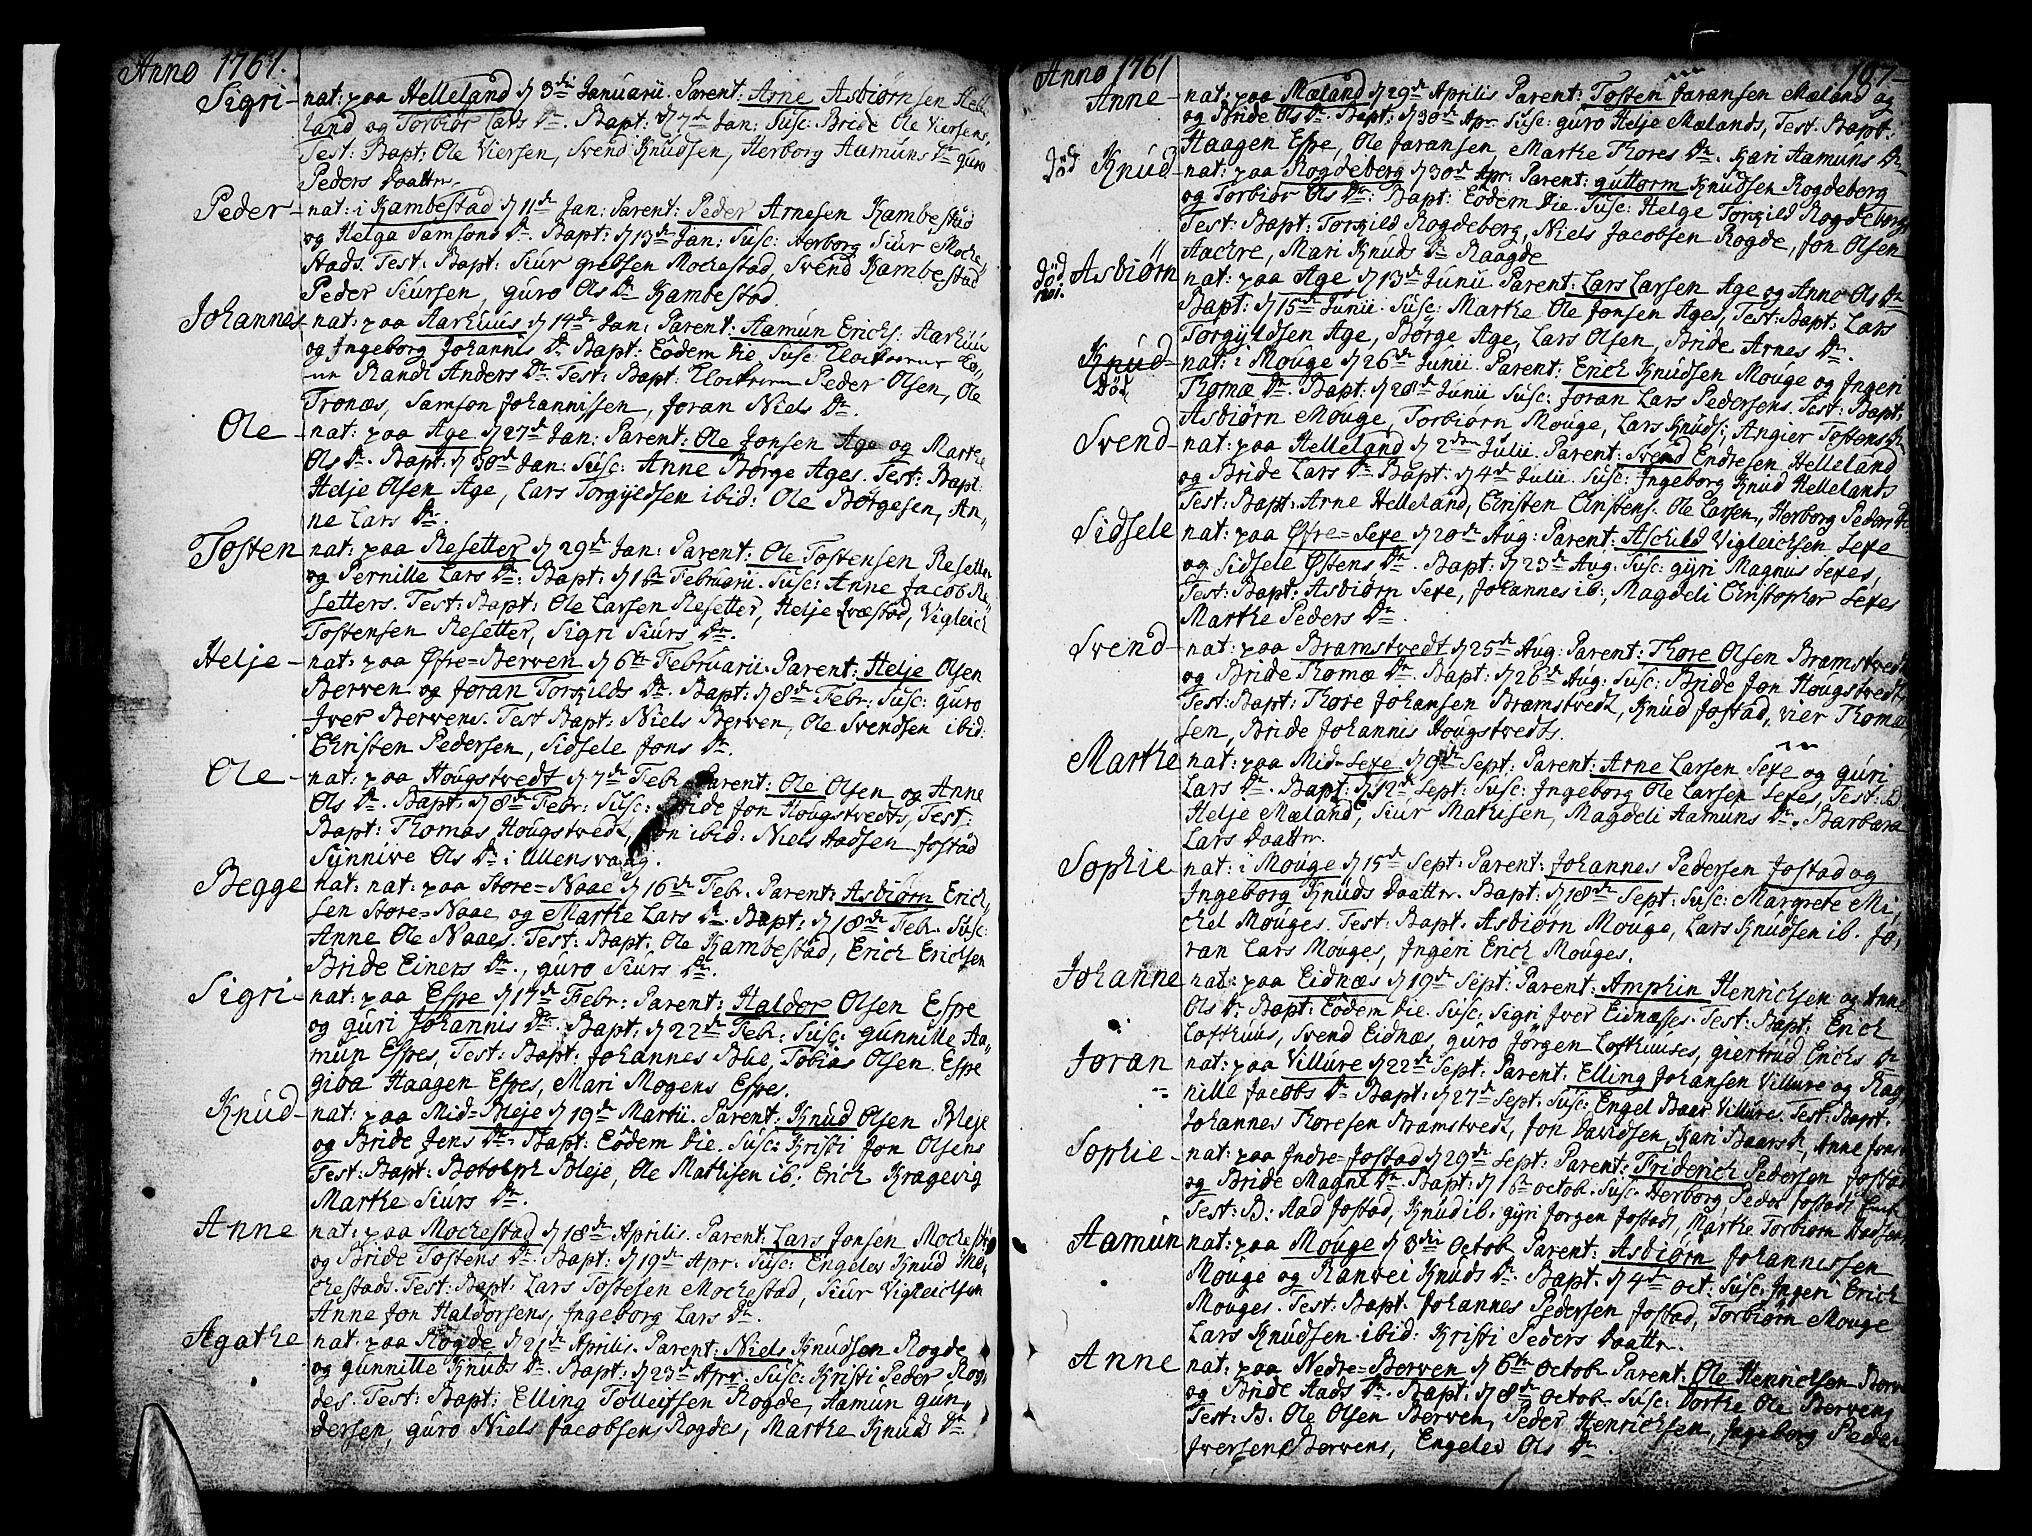 Anno 1761.
Sigri - nat: paa Helleland d 3die Januarii. Parent: Arne Asbiørnsen Helle
land og Torbiør Lars Dr. Bapt: d 7de Jan: Susc: Bride Ole Viersens,
Test: Bapt: Ole Viersen, Svend Knudsen, Herborg Aamuns Dr guro
Peders Daattr.
Peder - nat: i Kambestad d 11de Jan: Parent: Peder Arnesen Kambestad
og Helga Samsons Dr. Bapt: d 13de Jan: Susc: Herborg Siur Moche
stads. Test: Bapt: Siur grebsen Mochestad, Svend Kambestad
Peder Siursen, guro Ols Dr Kambestad.
Johannes - nat: paa Aarhuus d 14de Jan: Parent: Aamun Erichs: Aarhuus
og Ingeborg Johannis Dr. Bapt: Eodem die. Susc: Klockerens Ko-
ne Randi Anders Dr. Test: Bapt: Klockeren Peder Olsen, Ole
Tronæs, Samson Johannissen, Joran Niels Dr.
Ole - nat: paa Age d 27de Jan: Parent: Ole Jonsen Age og Marthe
Ols Dr. Bapt: d 30de Jan: Susc: Anne Børge Ages. Test: Bapt:
Helje Olsen Age, Lars Torgyldsen ibid: Ole Børgesen, An-
ne Lars Dr.
Tosten nat: paa Resetter d 29de Jan: Parent: Ole Tostensen Resetter
og Pernille Lars Dr: Bapt: d 1ste Februarii. Susc: Anne Jacob Re
setters. Test: Bapt: Ole Larsen Resetter, Helje Qvæstad, Vigleich
Tostensen Resetter, Sigri Siurs Dr.
Helje - nat: paa Øfre=Berven d 6te Februarii. Parent: Helje Olsen
Berven og Joran Torkilds Dr. Bapt: d 8de Febr: Susc: guro
Iver Bervens. Test Bapt: Niels Berven, Ole Svendsen ibid:
Christen Pedersen, Sidsele Jons Dr.
Ole - nat: paa Hougstvedt d 7de Febr Parent: Ole Olsen og Anne
Ols Dr. Bapt: d 8de Febr: Susc: Bride Jon Hougstvedts, Test:
Bapt: Thomas Hougstvedt, Jon ibid: Niels Aadsen Jostad
Synnive Ols Dr i Ullensvang.
Begge nat: nat: paa Store=Naae d 16de Febr. Parent: Asbiørn Erich
sen Store=Naae og Marthe Lars Dr. Bapt: d 18de Febr. Susc:
Anne Ole Naaes. Test: Bapt: Ole Kambestad, Erich Erichsen
Bride Einers Dr., guro Siurs Dr.
Sigri - nat: paa Espe d 17de Febr: Parent: Haldor Olsen Espe
og guri Johannis Dr. Bapt: d 22de Febr: Susc: gunnille Aa-
mun Espes, Test: Bapt: Johannes Bue, Tobias Olsen Espe
giøa Haagen Espes, Mari Mogens Espes.
Knud - nat: paa Mid=Bleje d 19de Martii. Parent: Knud Olsen Bleje
og Bride Jens Dr. Bapt: Eodem die. Susc: Kristi Jon Olsens
Test: Bapt: Botolph Bleje, Ole Mathisen ib: Erich Kragevig
Marthe Siurs Dr.
Anne nat: paa Mochestad d 18de Aprilis. Parent: Lars Jonsen Mochestad
og Bride Tostens Dr. Bapt: d 19de Apr. Susc: Engelev Knud Mo-
chestads. Test: Bapt: Lars Tostesen Mochestad, Siur Vigleichsen
Anne Jon Haldorsens, Ingeborg Lars Dr.
Agathe nat: paa Rogde d 21de Aprilis. Parent: Niels Knudsen Rogde
og gunnille Knuds Dr. Bapt: d 23de Apr. Susc: Kristi Peder Rog-
des. Test: Bapt: Elling Tolleifsen Rogde, Aamun gun
dersen, guro Niels Jacobsens Rogdes, Marthe Knuds Dr
Anno 1761 107
Anne - nat: paa Mæland d 29de Aprilis Parent: Tosten Jaransen Mæland og
og Bride Ols Dr. Bapt: d 30de Apr Susc: guro Helje Mælands, Test: Bapt:
Haagen Espe, Ole Jaransen Marthe Thores Dr. Kari Aamuns Dr
død Knud - nat: paa Rogdeberg d 30de Apr. Parent: guttorm Knudsen Rogdeberg
og Torbiør Ols Dr. Bapt: Eodem die. Susc: Helge Torkild Rogdebergs
Test: Bapt: Torkild Rogdeberg, Niels Jacobsen Rogde, Jon Olsen
Aachre, Mari Knuds Dr Raagde
død Asbiørn nat: paa Age d 13de Junii Parent: Lars Larsen Age og Anne Ols Dr
Bapt: d 15de Junii. Susc: Marthe Ole Jonsen Ages, Test: Bapt: Lars
Torgyldsen Age, Børge Age, Lars Olsen, Bride Arnes Dr.
Knud - nat: i Mouge d 26de Junii. Parent: Erich Knudsen Mouge og Ingeri
Død Thomæ Dr. Bapt: d 28de Junii Susc: Joran Lars Pedersens. Test: Bapt:
Asbiørn Mouge, Torbiørn Mouge, Lars Knuds:, Angier Tostens Dr
Svend - nat: paa Helleland d 2den Julii. Parent: Svend Endresen Helleland
og Bride Lars Dr. Bapt: d 4de Julii. Susc: Ingeborg Knud Hellelands
Test: Bapt: Arne Helleland, Christen Christens. Ole Larsen, Herborg Peders Dr
Sidsele nat: paa Øfre=Sexe d 20de Aug: Parent: Aschild Vigleichsen Sexe
og Sidsele Østens Dr. Bapt: d 23de Aug: Susc: gyri Magnus Sexes,
Test: Bapt: Asbiørn Sexe, Johannes ib:, Magdeli Christopher Sexes
Marthe Peders Dr.
Svend - nat: paa Bramstvedt d 25de Aug: Parent: Thore Olsen Bramstvedt
og Bride Thomæ Dr. Bapt: d 26de Aug: Susc: Bride Jon Hougstvedts
Test: Bapt: Thore Johansen Bramstvedt, Knud Jostad, Vier Thomæ
sen, Bride Johannis Hougstvedts.
Marthe nat: paa Mid=Sexe d 9de Sept: Parent: Arne Larsen Sexe og guri
Lars Dr. Bapt: d 12de Sept: Susc: Ingeborg Ole Larsen Sexes, Test: B:
Helje Mæland, Siur Mathisen, Magdeli Aamuns Dr. Barbara
Lars Daattr.
Sophie nat: i Mouge d 15de Sept: Parent: Johannes Pedersen Jostad og
Ingeborg Knuds Daattr. Bapt: d 18de Sept: Susc: Margrete Mi-
chel Mouges. Test: Bapt: Asbiørn Mouge, Lars Knudsen ib. Jo-
ran Lars Mouges, Ingeri Erich Mouges.
Johanne nat: paa Eidnæs d 19de Sept: Parent: Amphin Henrichsen og Anne
Ols Dr. Bapt: Eodem die. Susc: Sigri Iver Eidnæsses. Test: Bapt: Erich
Lofthuus, Svend Eidnæs, guro Jørgen Lofthuuses, giertrud Erichs Dr
Joran nat: paa Villure d 22de Sept: Parent: Elling Johansen Villure og Rag-
nille Jacobs Dr Bapt: d 27de Sept: Susc: Engel Baar Villure. Test: Bapt:
Johannes Thoresen Bramstvedt, Jon Davidsen, Kari Baars Dr, Anne Jons
Sophie - nat: paa Indre=Jostad d 29de Sept: Parent: Friderich Pedersen Jostad
og Bride Magni Dr. Bapt: d 1ste Octob. Susc: Herborg Peder Jostads
Test: B: Aad Jostad, Knud ib. gyri Jørgen Jostads, Marthe Torbiørn
Aamun nat: paa Mouge d 3die Octob Parent: Asbiørn Johannessen
Mouge og Ranvei Knuds Dr. Bapt: d 4de Oct: Susc: Ingeri Erich
Mouges. Test: Bapt: Johannes Pedersen Jostad, Torbiørn Mouge
Lars Knudsen ibid: Kristi Peders Daattr.
Anne nat: paa Nedre=Berven d 6te Octob Parent: Ole Henrichsen Berven
og Bride Aads Dr. Bapt: d 8de Octob Susc: Dorthe Ole Bervens
Test: B. Ole Olsen Berven, Peder Henrichsen, Ingeborg Peder
Iversens Bervens, Engelev Ols Dr